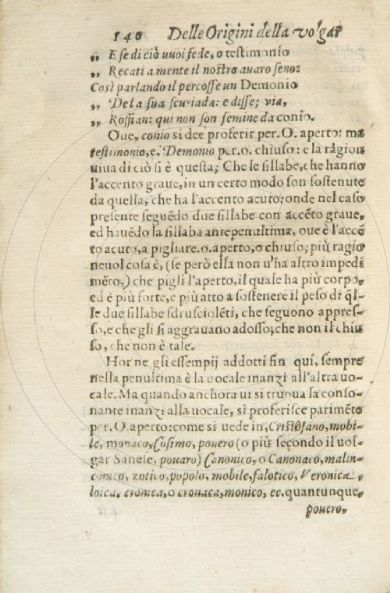 140 Delle Origini della volgar
„ E se di ciò vuoi fede, o testimonio
„ Recati a mente il nostro avaro seno:
Così parlando il percosse un Demonio
„ De la sua scuriada: e disse; via,
„ Roffian: qui non son femine da conio.
Oue, conio si dee proferir per. O. aperto: ma
testimonio, e. Demonio per. o. chiuso: e la ragion
uiua di ciò si è questa; Che le sillabe, che hanno
l'accento graue, in un certo modo son sostenute
da quella, che ha l'accento acuto; onde nel caso
presente seguēdo due sillabe con accēto graue,
ed hauēdo la sillaba antepenultima, oue è l'accē
to acuto, a pigliare. o. aperto, o chiuso; più ragio
neuol cosa è, (se però ella non u'ha altro impedi
mēto,) che pigli l'aperto, il quale ha più corpo,
ed è più forte, e più atto a sostenere il peso di q̄l-
le due sillabe sdruscioleti, che seguono appres-
so, e che gli si aggrauano adosso; che non il chiu
so, che non è tale.
Hor ne gli essempij addotti fin qui, sempre
nella penultima è la uocale inanzi all'altra uo-
cale. Ma quando anchora ui si truoua la conso-
nante inanzi alla uocale, si proferisce parimēte
per. O. aperto: come si uede in, Cristofano, mobi-
le, monaco, Cosimo, pouero (o più secondo il uol-
gar Sanese, pouaro) Canonico, o Canonaco, malin-
conico, zotico, popolo, mobile, falotico, Veronica
loica, cronica, o cronaca, monico, ec. quantunque,
pouero,